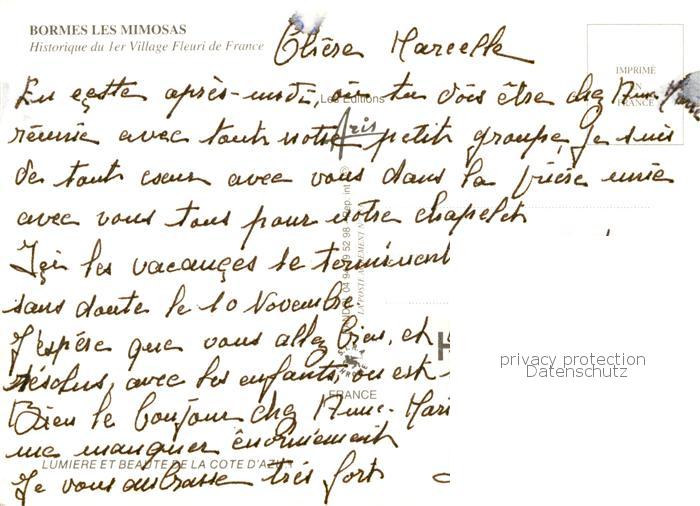 BORMES LES MIMOSAS
Historique du 1er Village Fleuri de France
Chère Marcelle
IMPRIMÉ
EN
FRANCE
Les Editions
Aris
En cette après-midi, où tu dois être chez Anne-Marie
réunie avec toute notre petit groupe, Je suis
de tout coeur avec vous dans la prière unie
avec vous tous pour votre chapelet
Içi les vacances se terminent
sans doute le 10 Novembre.
J'espère que vous allez bien, et
avec les enfants, où est
Bien le bonjour chez Anne-Mari
me manquer énormément
FRANCE
LUMIERE ET BEAUTE DE LA COTE D'AZUR
Je vous embrasse très fort
privacy protection
Datenschutz